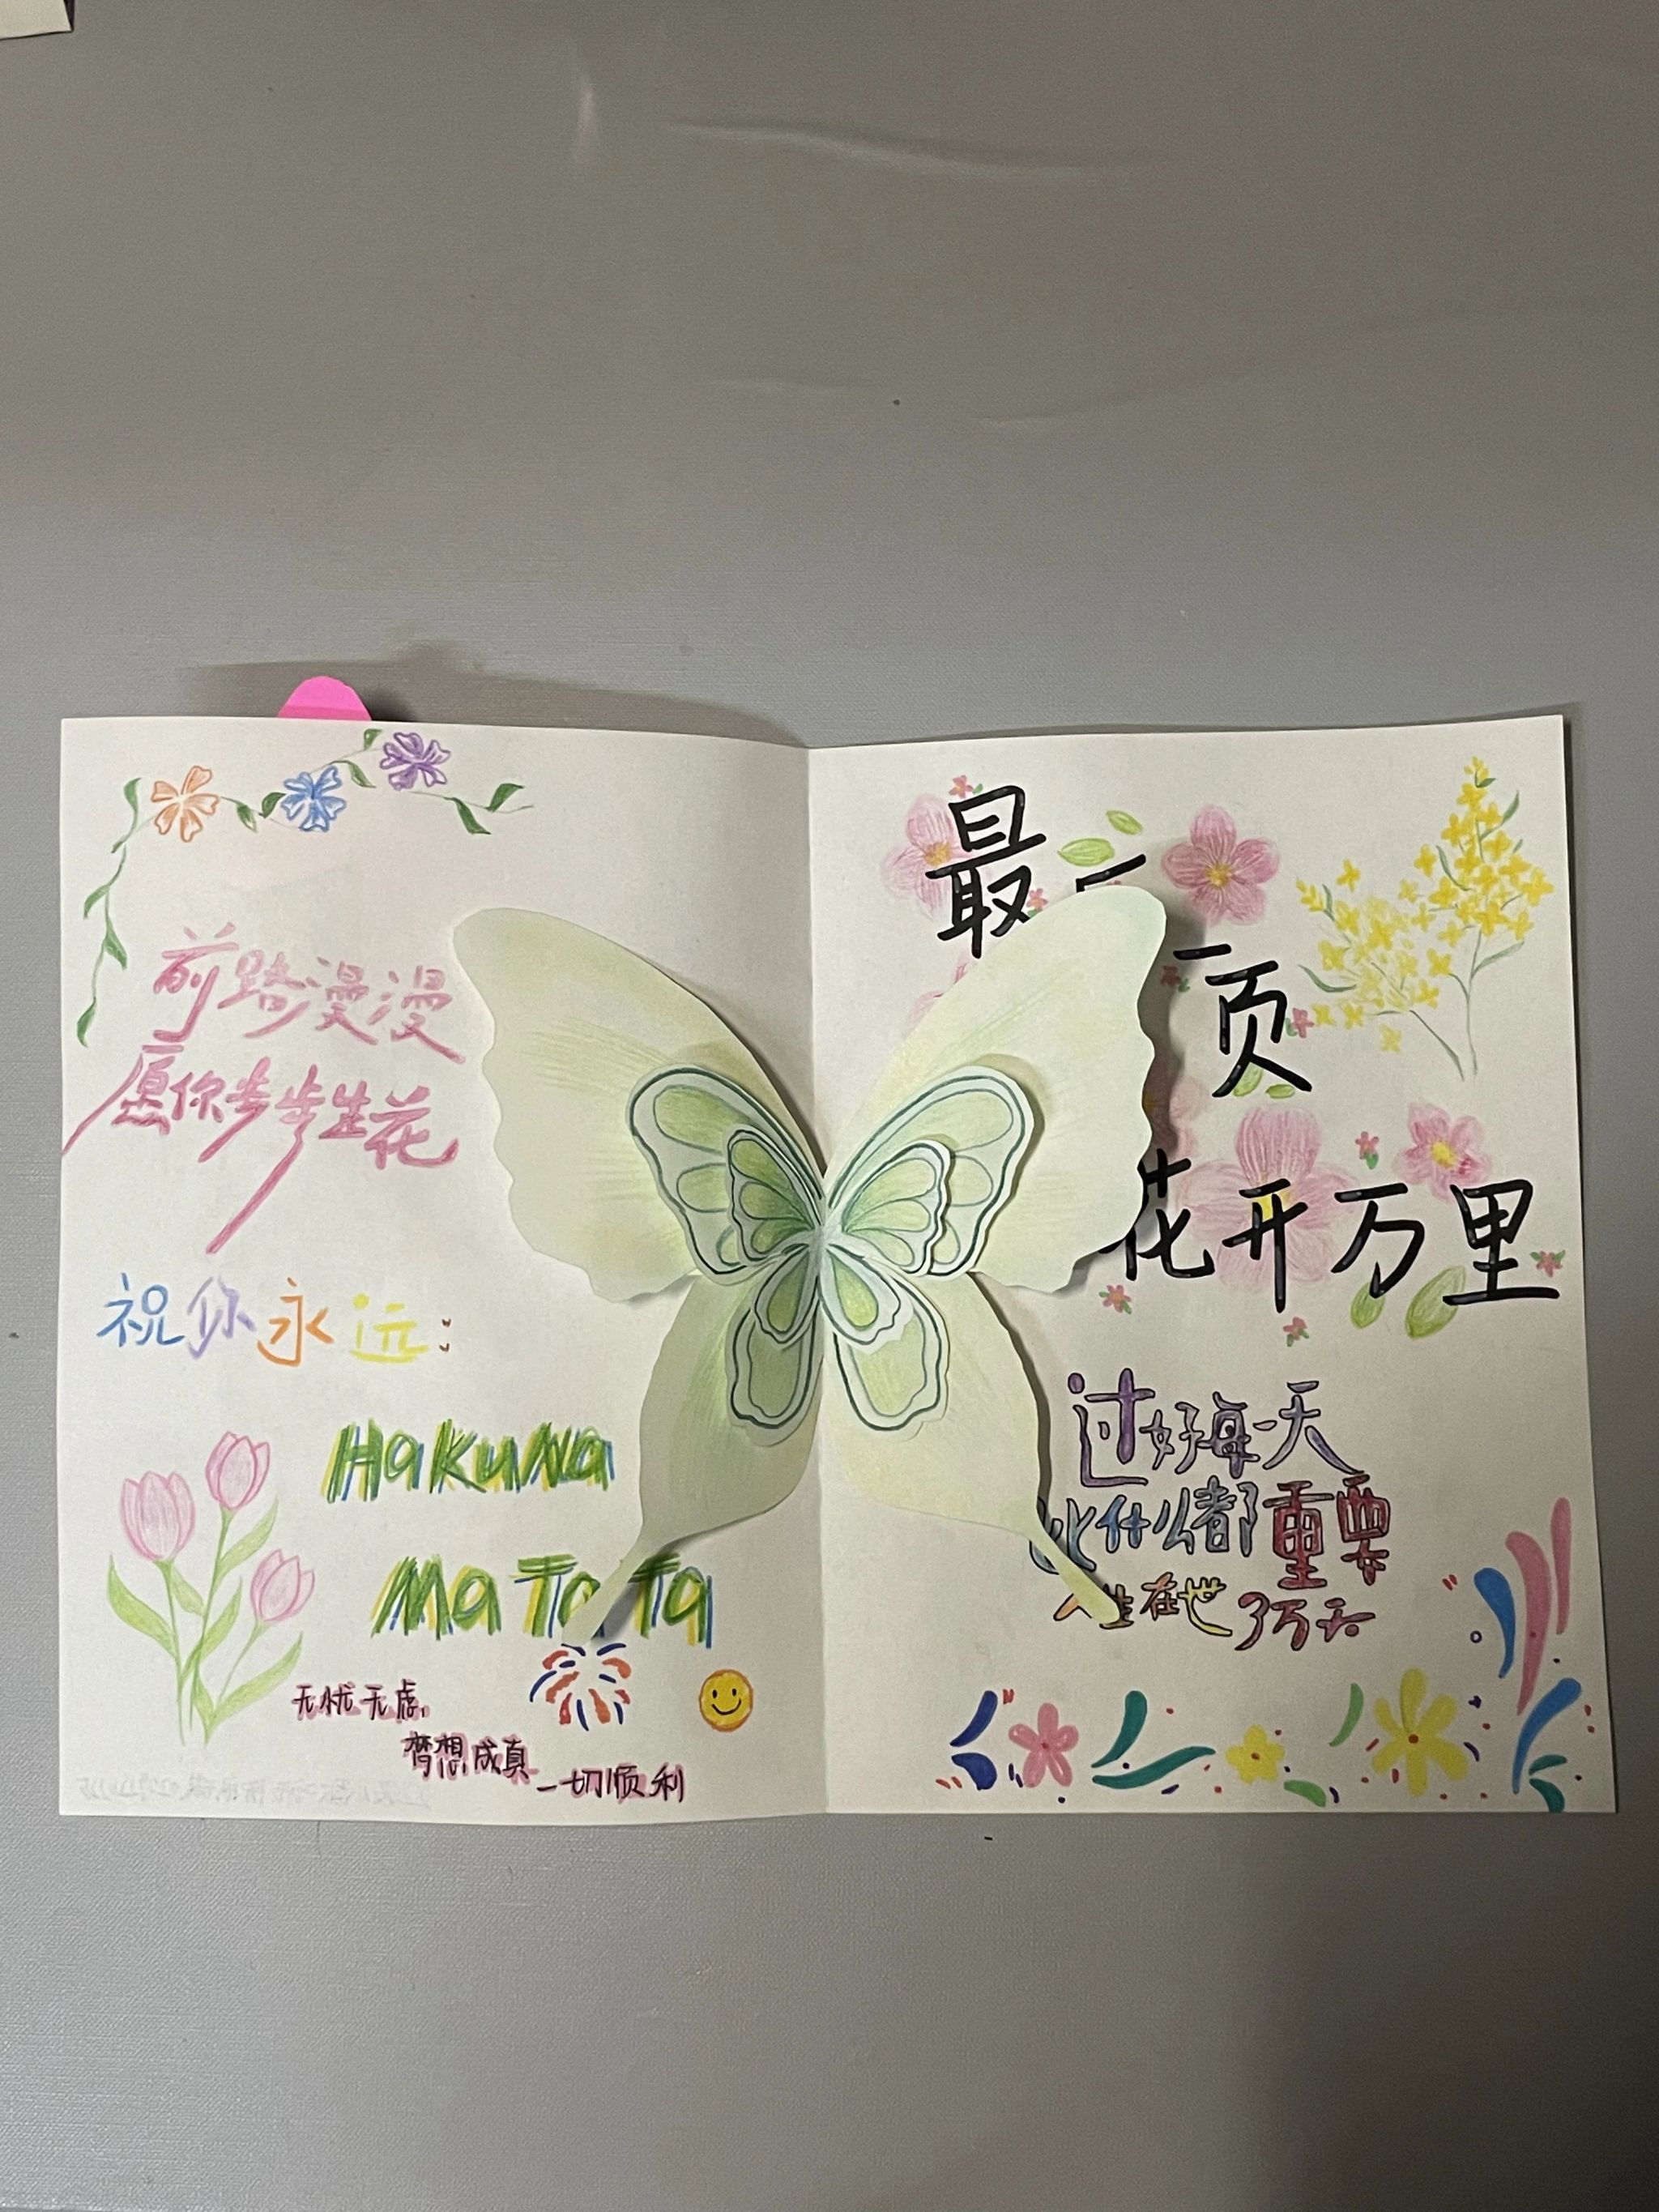 前路漫漫
愿你步步生花
祝你永远:
HakuNa
MaTaTa
无忧无虑,
梦想成真
一切顺利
最
一页
花开万里
过好每一天
比什么都重要
人生在世 3万天